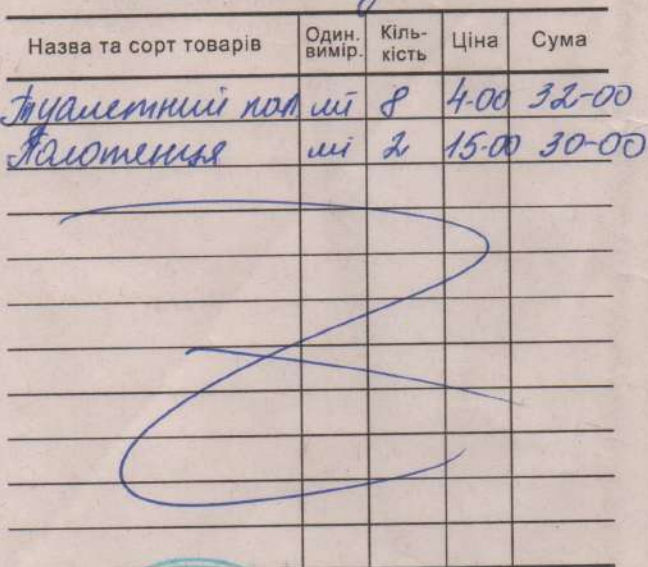 Назва та сорт товарів Один. вимір. Кіль-кість Ціна Сума
Туалетний пап шт 8 4-00 32-00
Полотенця шт 2 15-00 30-00